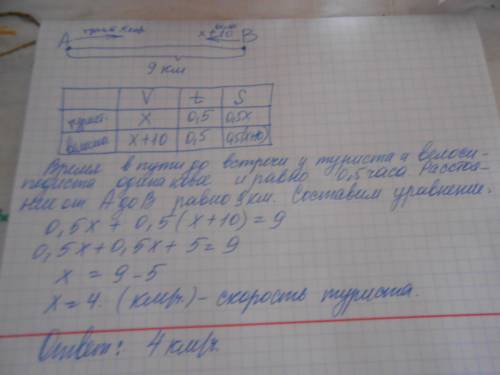 A турист x км/ч x+10 B
9 км
V t S
турист. x 0,5 0,5x
велосип. x+10 0,5 0,5(x+10)
Время в пути до встречи у туриста и велоси-
педиста одинаковые и равно 0,5 часа. Расстоя-
ние от A до B равно 9 км. Составим уравнение:
0,5x + 0,5(x+10) = 9
0,5x + 0,5x + 5 = 9
x = 9 - 5
x = 4 (км/ч) - скорость туриста.
Ответ: 4 км/ч.